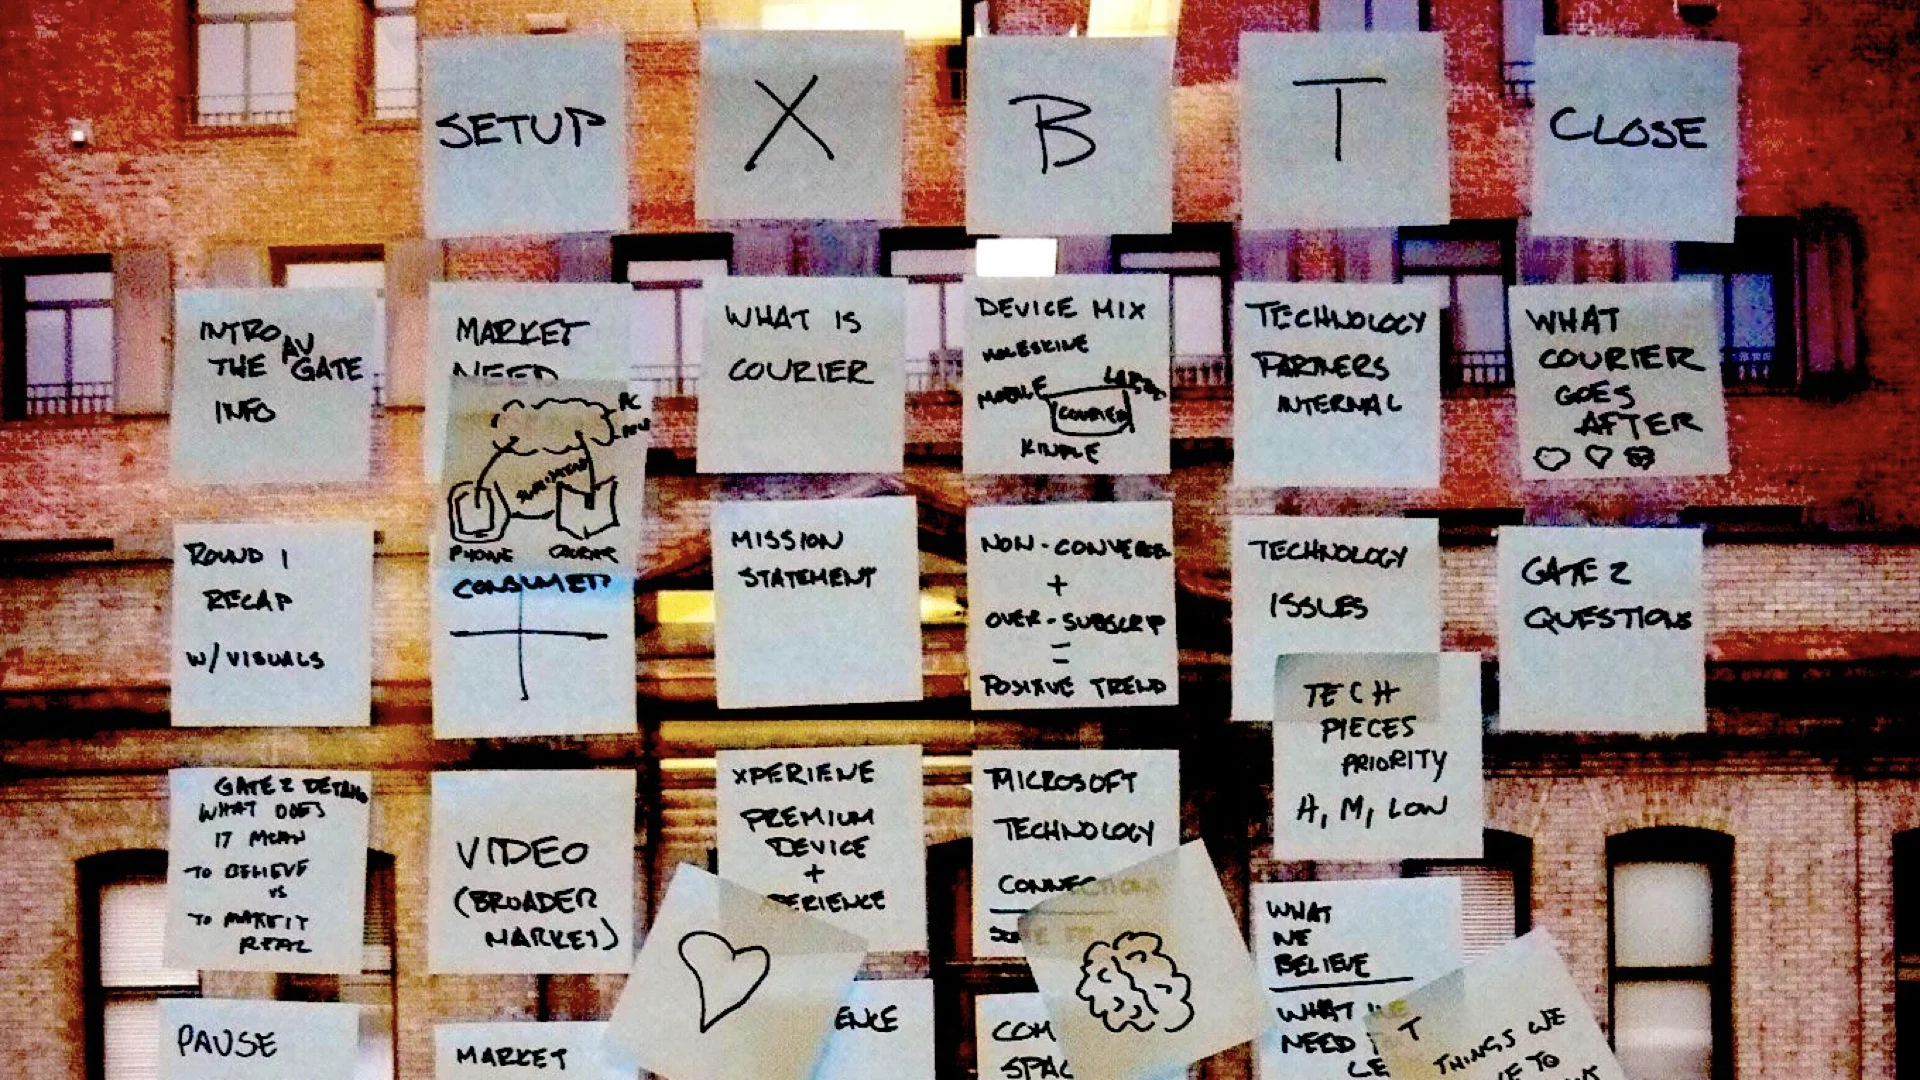 SETUP
X
B
T
CLOSE
INTRO AV
THE GATE
INFO
MARKET
NEED
PC
PHONE
CONSUMER
WHAT IS
COURIER
DEVICE MIX
MOLESKINE
MOBILE
COURIER
KINDLE
TECHNOLOGY
PARTNERS
INTERNAL
WHAT
COURIER
GOES
AFTER
ROUND 1
RECAP
W/VISUALS
MISSION
STATEMENT
NON-CONVERGED
+
OVER-SUBSCRIP
=
POSITIVE TREND
TECHNOLOGY
ISSUES
GATE 2
QUESTIONS
TECH
PIECES
PRIORITY
H, M, LOW
GATE 2 DETAILS
WHAT DOES
IT MEAN
TO BELIEVE
VS
TO MAKE IT
REAL
VIDEO
(BROADER
MARKET)
XPERIENE
PREMIUM
DEVICE
+
PERIENCE
MICROSOFT
TECHNOLOGY
CONNECTIONS
WHAT
WE
BELIEVE
WHAT WE
NEED
LE
PAUSE
MARKET
ENCE
COM
SPAC
T
THINGS WE
TO